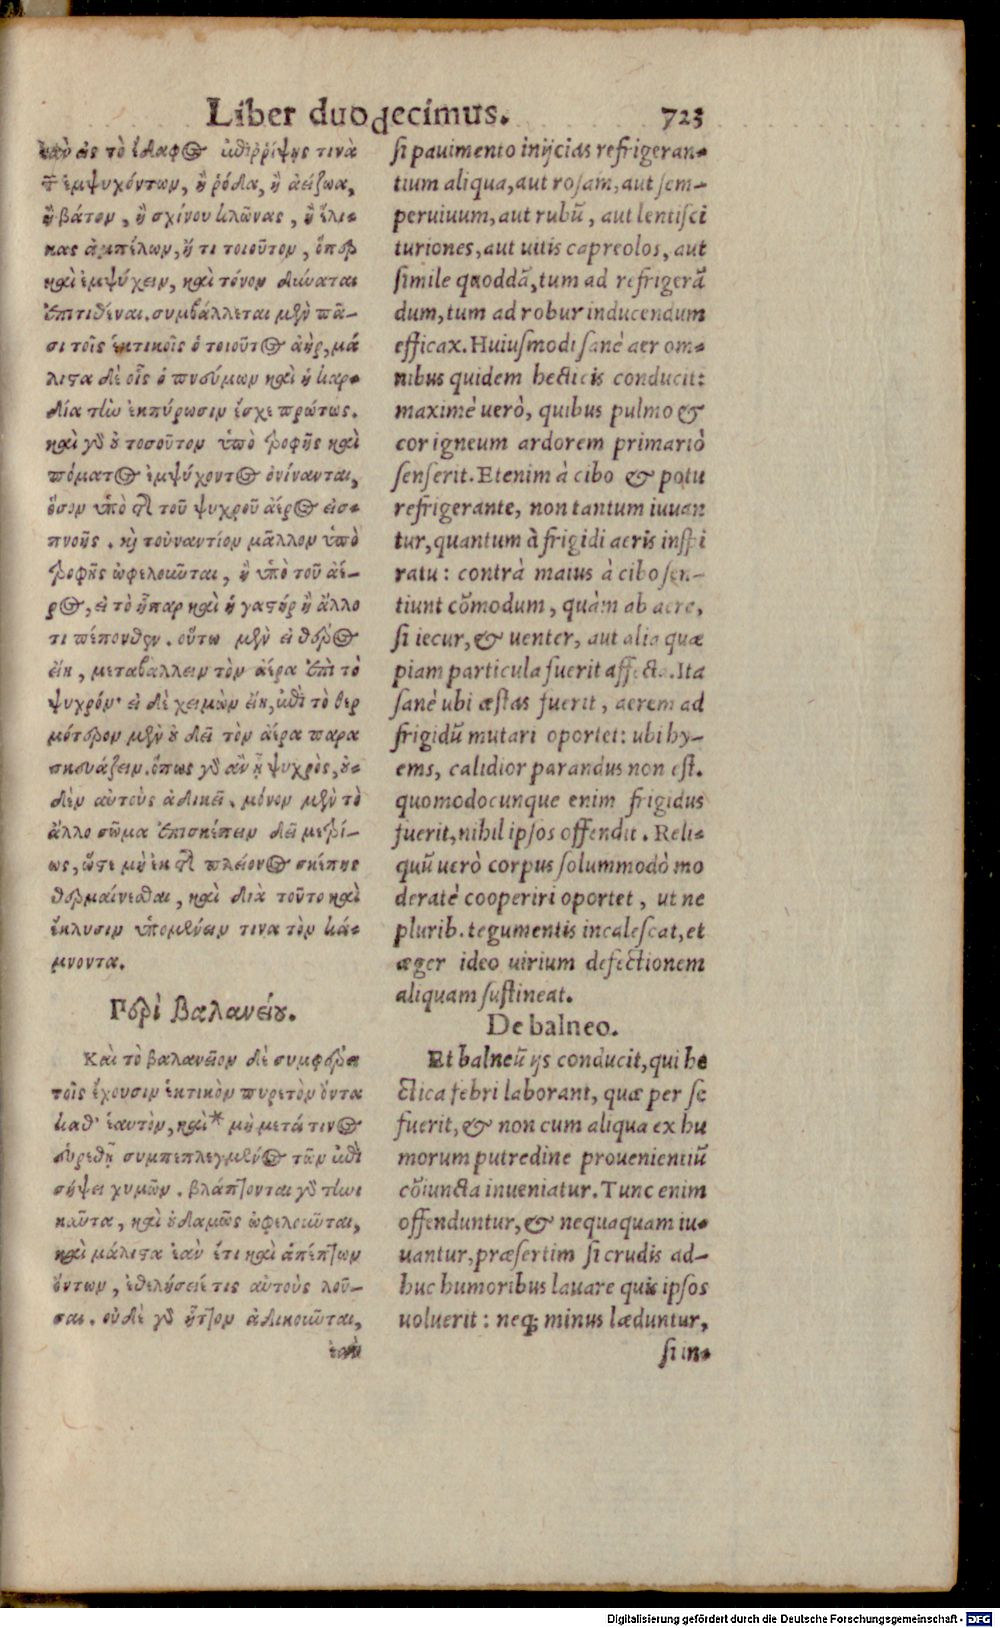 Liber duodecimus. 723
ἐὰν εἰς τὸ ἔδαφος ἐπιῤῥίψῃς τινὰ
τῶν ἐμψυχόντων, ἢ ῥόδα, ἢ ἀείζωα,
ἢ βάτον, ἢ σχίνου κλῶνας, ἢ ἕλι-
κας ἀμπέλων, ἤ τι τοιοῦτον, ὅπερ
καὶ ἐμψύχειν, καὶ τόνον δύναται
ἐπιτιθέναι. συμβάλλεται μὲν πᾶ-
σι τοῖς ἑκτικοῖς ὁ τοιοῦτος ἀὴρ, μά
λιστα δὲ οἷς ὁ πνεύμων καὶ ἡ καρ-
δία τὴν ἐκπύρωσιν ἔσχε πρώτως.
καὶ γὰρ οὐ τοσοῦτον ὑπὸ τροφῆς καὶ
πόματος ἐμψύχοντος ὀνίνανται,
ὅσον ὑπὸ τῆς τοῦ ψυχροῦ ἀέρος εἰσ-
πνοῆς. καὶ τοὐναντίον μᾶλλον ὑπὸ
τροφῆς ὠφελοῦνται, ἢ ὑπὸ τοῦ ἀέ-
ρος, εἰ τὸ ἧπαρ καὶ ἡ γαστήρ ἢ ἄλλο
τι πέπονθεν. οὕτω μὲν εἰ θέρος
εἴη, μεταβάλλειν τὸν ἀέρα ἐπὶ τὸ
ψυχρόν· εἰ δὲ χειμὼν εἴη, ἐπὶ τὸ θερ
μότερον μὲν οὐ δεῖ τὸν ἀέρα παρα
σκευάζειν. ὅπως γὰρ ἂν ᾖ ψυχρὸς, οὐ-
δὲν αὐτοὺς ἀδικεῖ. μόνον μὲν τὸ
ἄλλο σῶμα ἐπισκέπειν δεῖ μετρί-
ως, ὥστε μὴ ἐκ τῆς πλείονος σκέπης
θερμαίνεσθαι, καὶ διὰ τοῦτο καὶ
ἔκλυσιν ὑπομένειν τινα τὸν κά-
μνοντα.
Περὶ βαλανείου.
Καὶ τὸ βαλανεῖον δὲ συμφέρει
τοῖς ἔχουσιν ἑκτικὸν πυρετὸν ὄντα
καθ' ἑαυτὸν, καὶ* μὴ μετά τινος
εὑρεθῇ συμπεπλεγμένος τῶν ἐπὶ
σήψει χυμῶν. βλάπτονται γὰρ τηνι
καῦτα, καὶ οὐδαμῶς ὠφελοῦνται,
καὶ μάλιστα ἐὰν ἔτι καὶ ἀπέπτων
ὄντων, ἐθελήσειέ τις αὐτοὺς λοῦ-
σαι. οὐδὲ γὰρ ἧττον ἀδικοῦνται,
ἐὰν
si pauimento inijcias refrigeran-
tium aliqua, aut rosam, aut sem-
peruiuum, aut rubũ, aut lentisci
turiones, aut uitis capreolos, aut
simile quoddã, tum ad refrigerã
dum, tum ad robur inducendum
efficax. Huiusmodi sanè aer om-
nibus quidem hecticis conducit:
maximè uerò, quibus pulmo &
cor igneum ardorem primariò
senserit. Etenim à cibo & potu
refrigerante, non tantum iuuan
tur, quantum à frigidi aeris inspi
ratu: contrà maius à cibo sen-
tiunt cõmodum, quàm ab aere,
si iecur, & uenter, aut alia quæ
piam particula fuerit affecta. Ita
sanè ubi æstas fuerit, aerem ad
frigidũ mutari oportet: ubi hy-
ems, calidior parandus non est.
quomodocunque enim frigidus
fuerit, nihil ipsos offendit. Reli-
quũ uerò corpus solummodò mo
deratè cooperiri oportet, ut ne
plurib. tegumentis incalescat, et
æger ideo uirium defectionem
aliquam sustineat.
De balneo.
Et balneũ ijs conducit, qui he
ctica febri laborant, quæ per se
fuerit, & non cum aliqua ex hu
morum putredine prouenientiũ
cõiuncta inueniatur. Tunc enim
offenduntur, & nequaquam iu-
uantur, præsertim si crudis ad-
huc humoribus lauare quis ipsos
uoluerit: neq; minus læduntur,
si in-
Digitalisierung gefördert durch die Deutsche Forschungsgemeinschaft - DFG